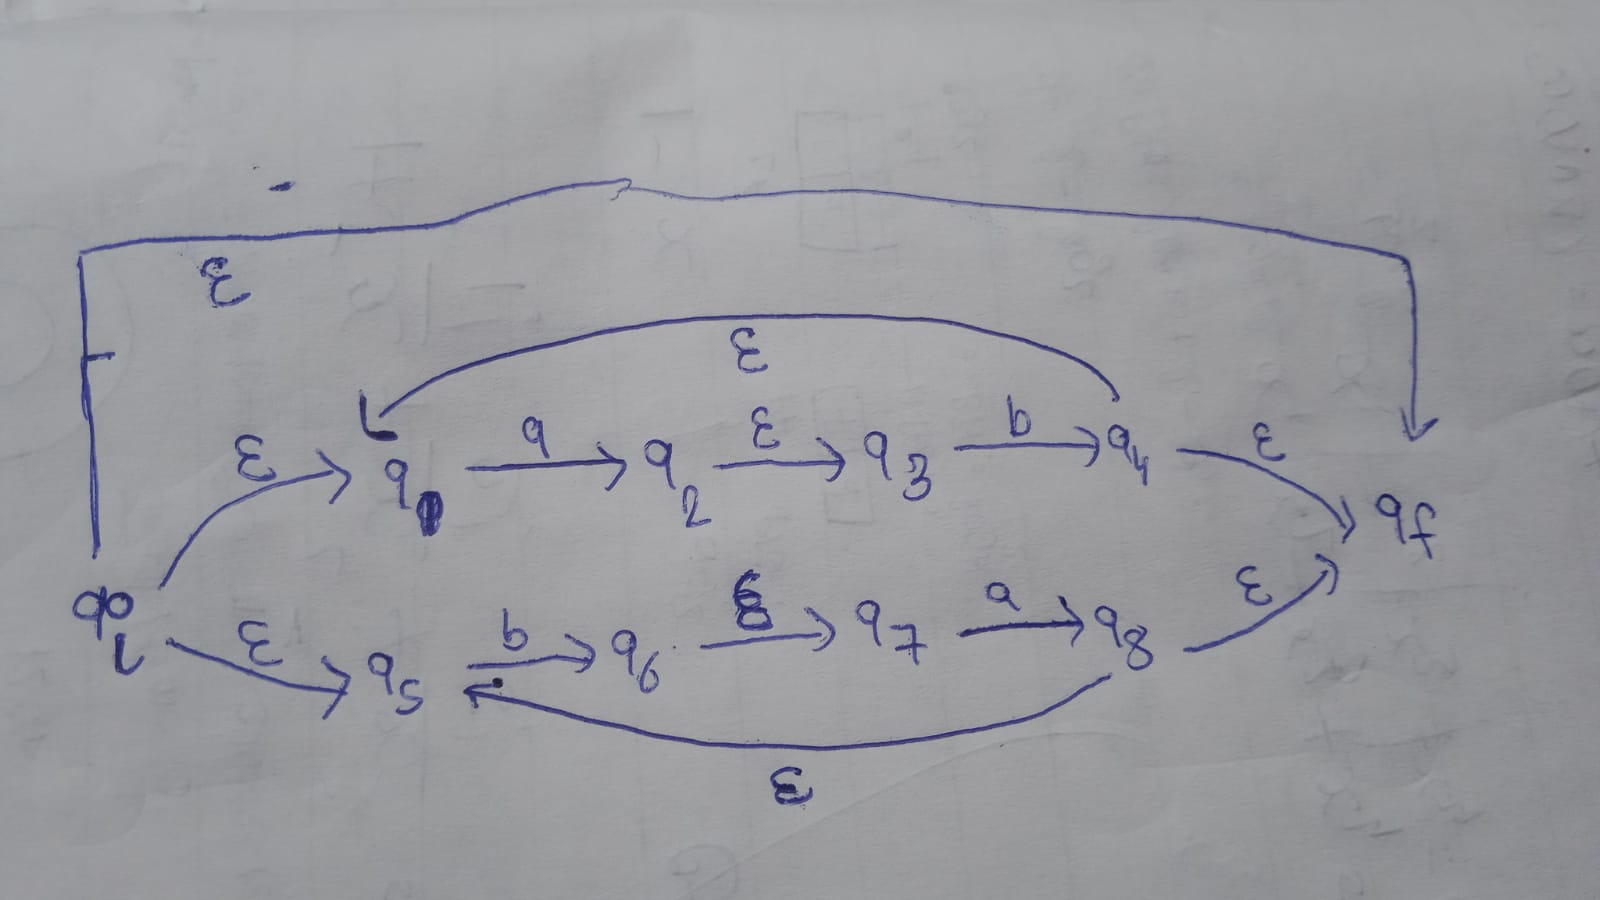 ε
ε
ε q a q2 ε q3 b q4 ε
qf
qi ε q5 b q6 ε q7 a q8 ε
ε